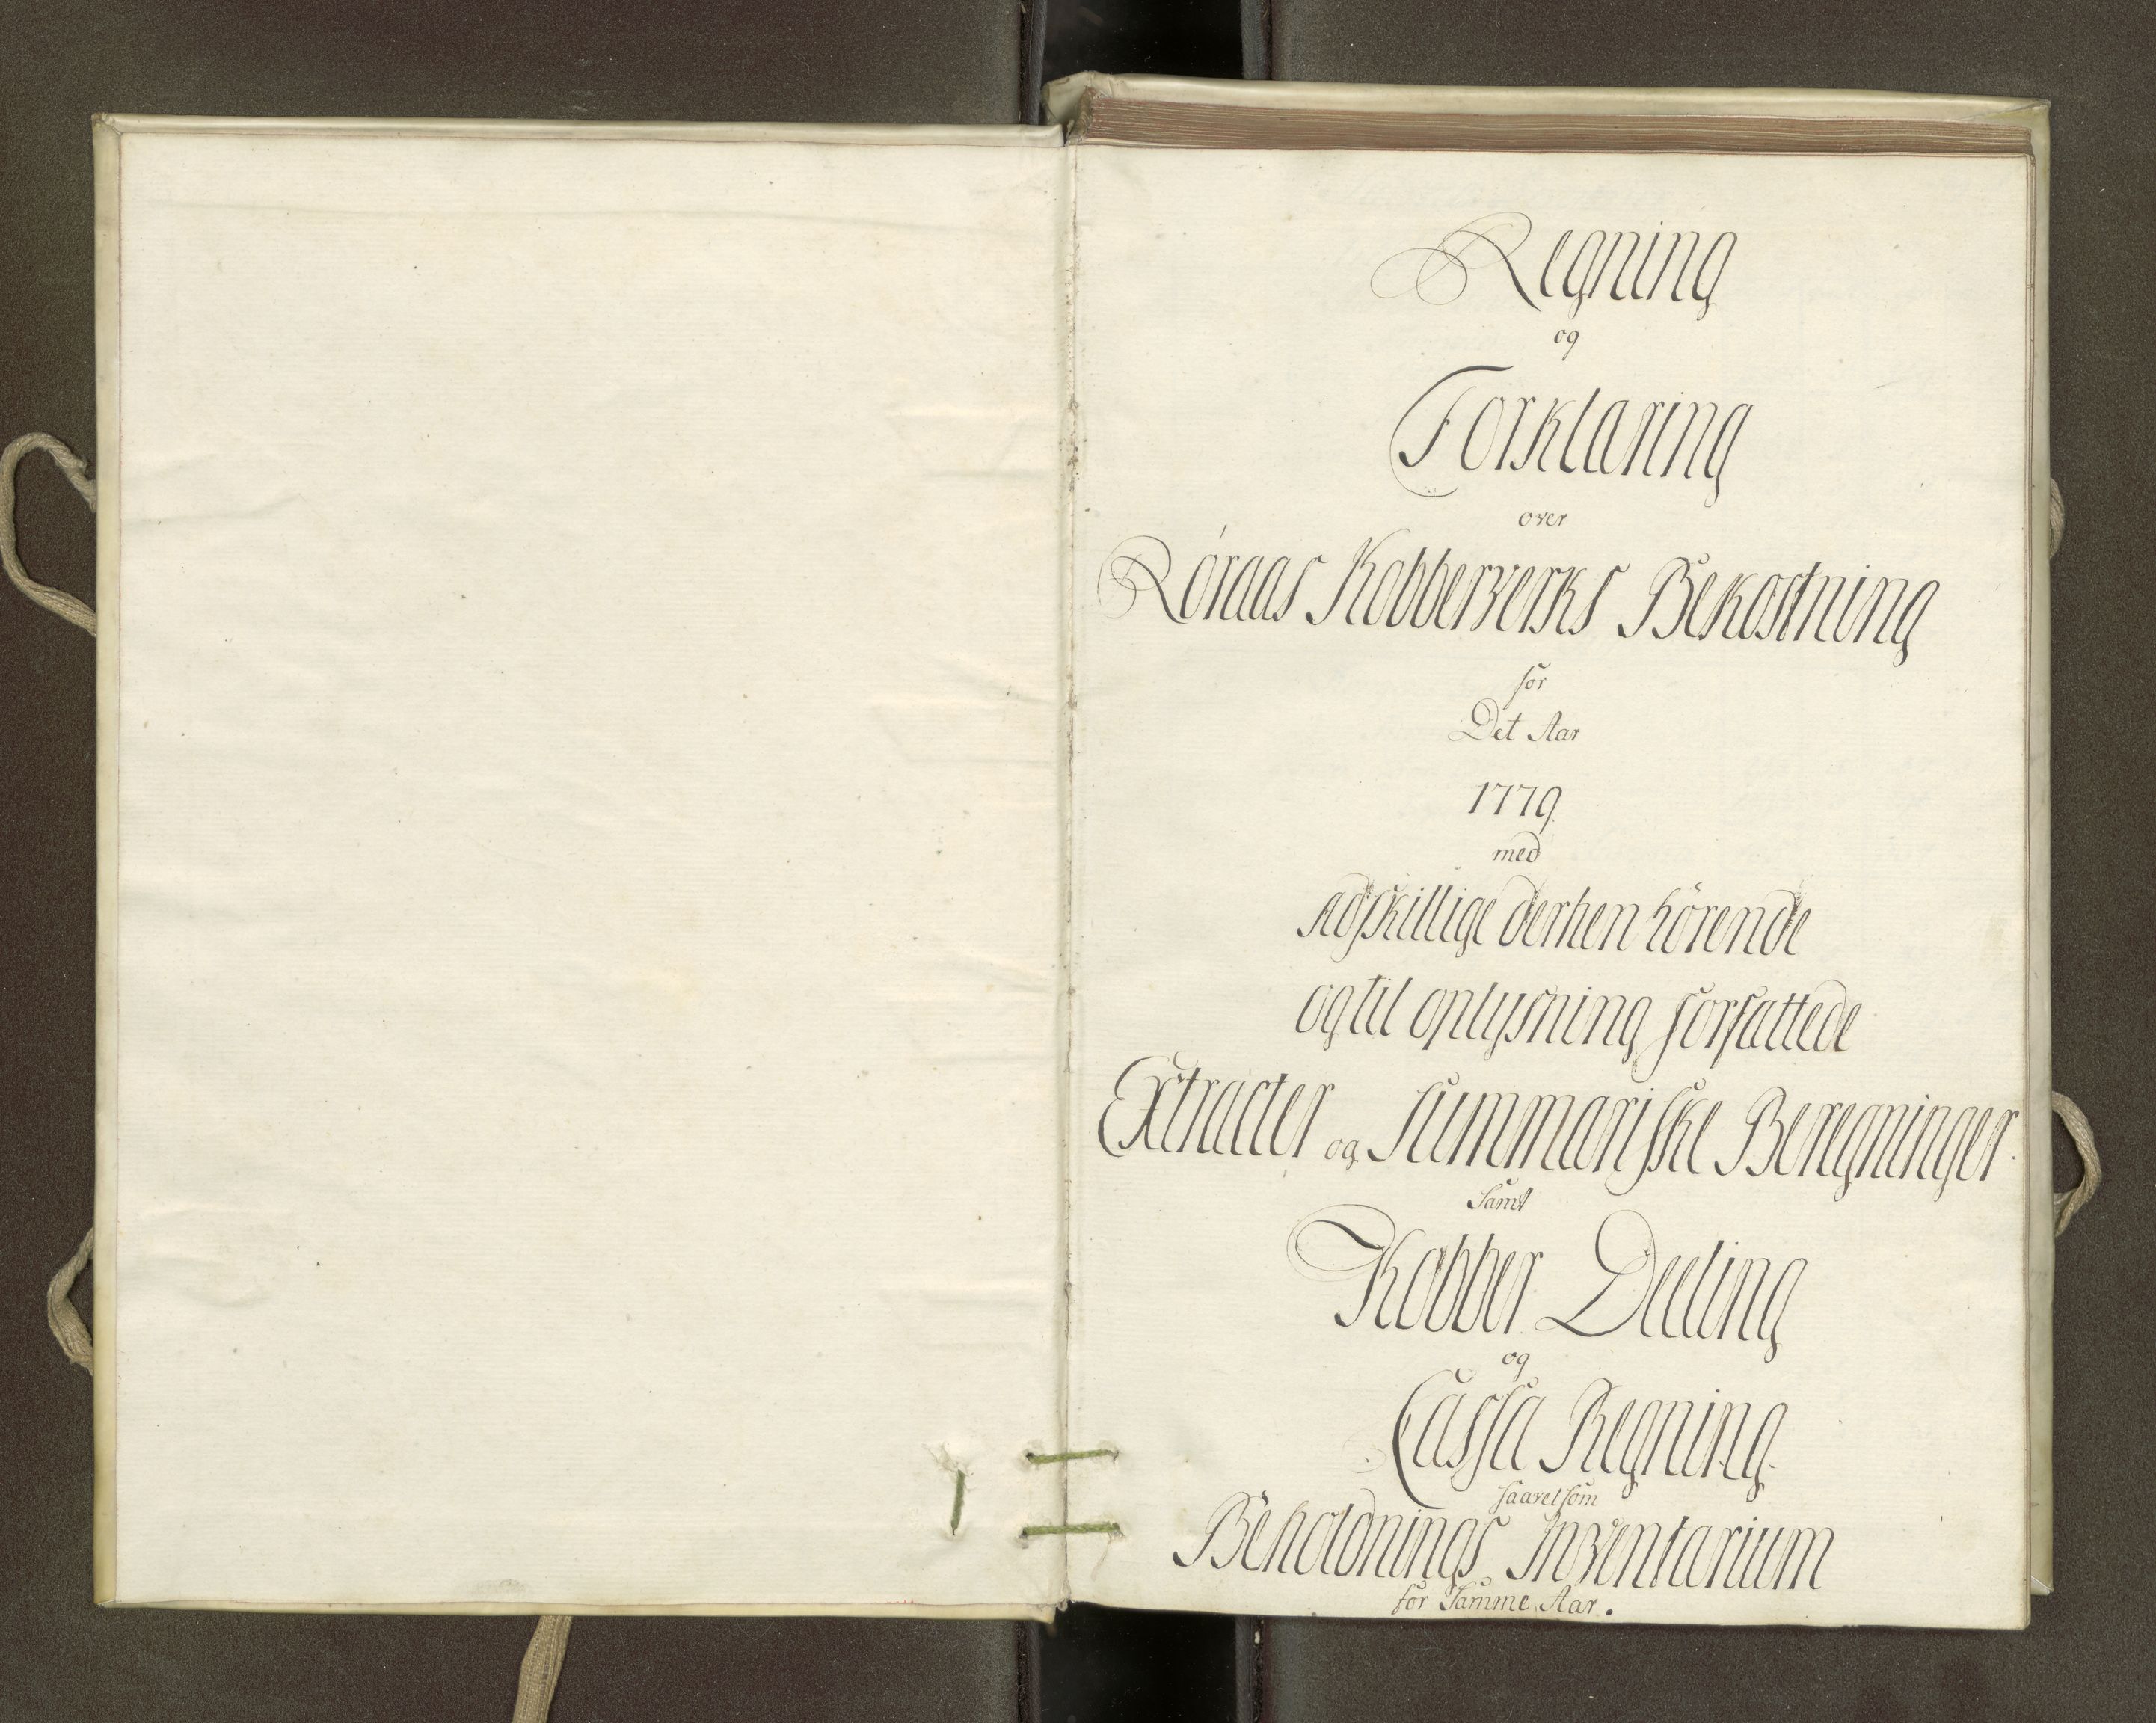 Regning
og
Forklaring
over
Röraas Kobberverks Bekostning
for
Det Aar
1779
med
adskillige derhen hörende
og til oplysning forfattede
Extracter og Summariske Beregninger.
Samt
Kobber Deeling
og
Cassa Regning.
saavelsom
Beholdnings Inventarium
for Samme Aar.